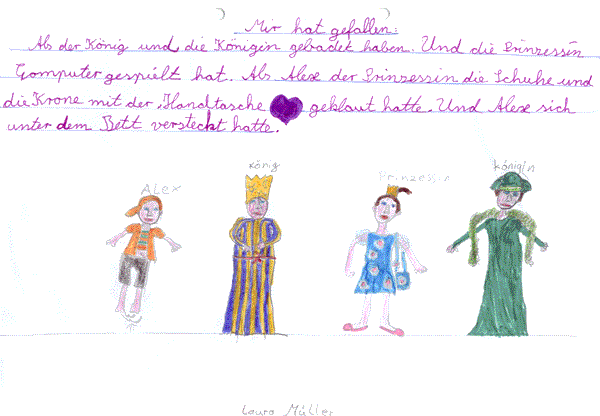 Mir hat gefallen:
Als der König und die Königin gebadet haben. Und die Prinzessin
Gomputer gespielt hat. Als Alex der Prinzessin die Schuhe und
die Krone mit der Handtasche geklaut hatte. Und Alex sich
unter dem Bett versteckt hatte.
Alex König Prinzessin Königin
Laura Müller